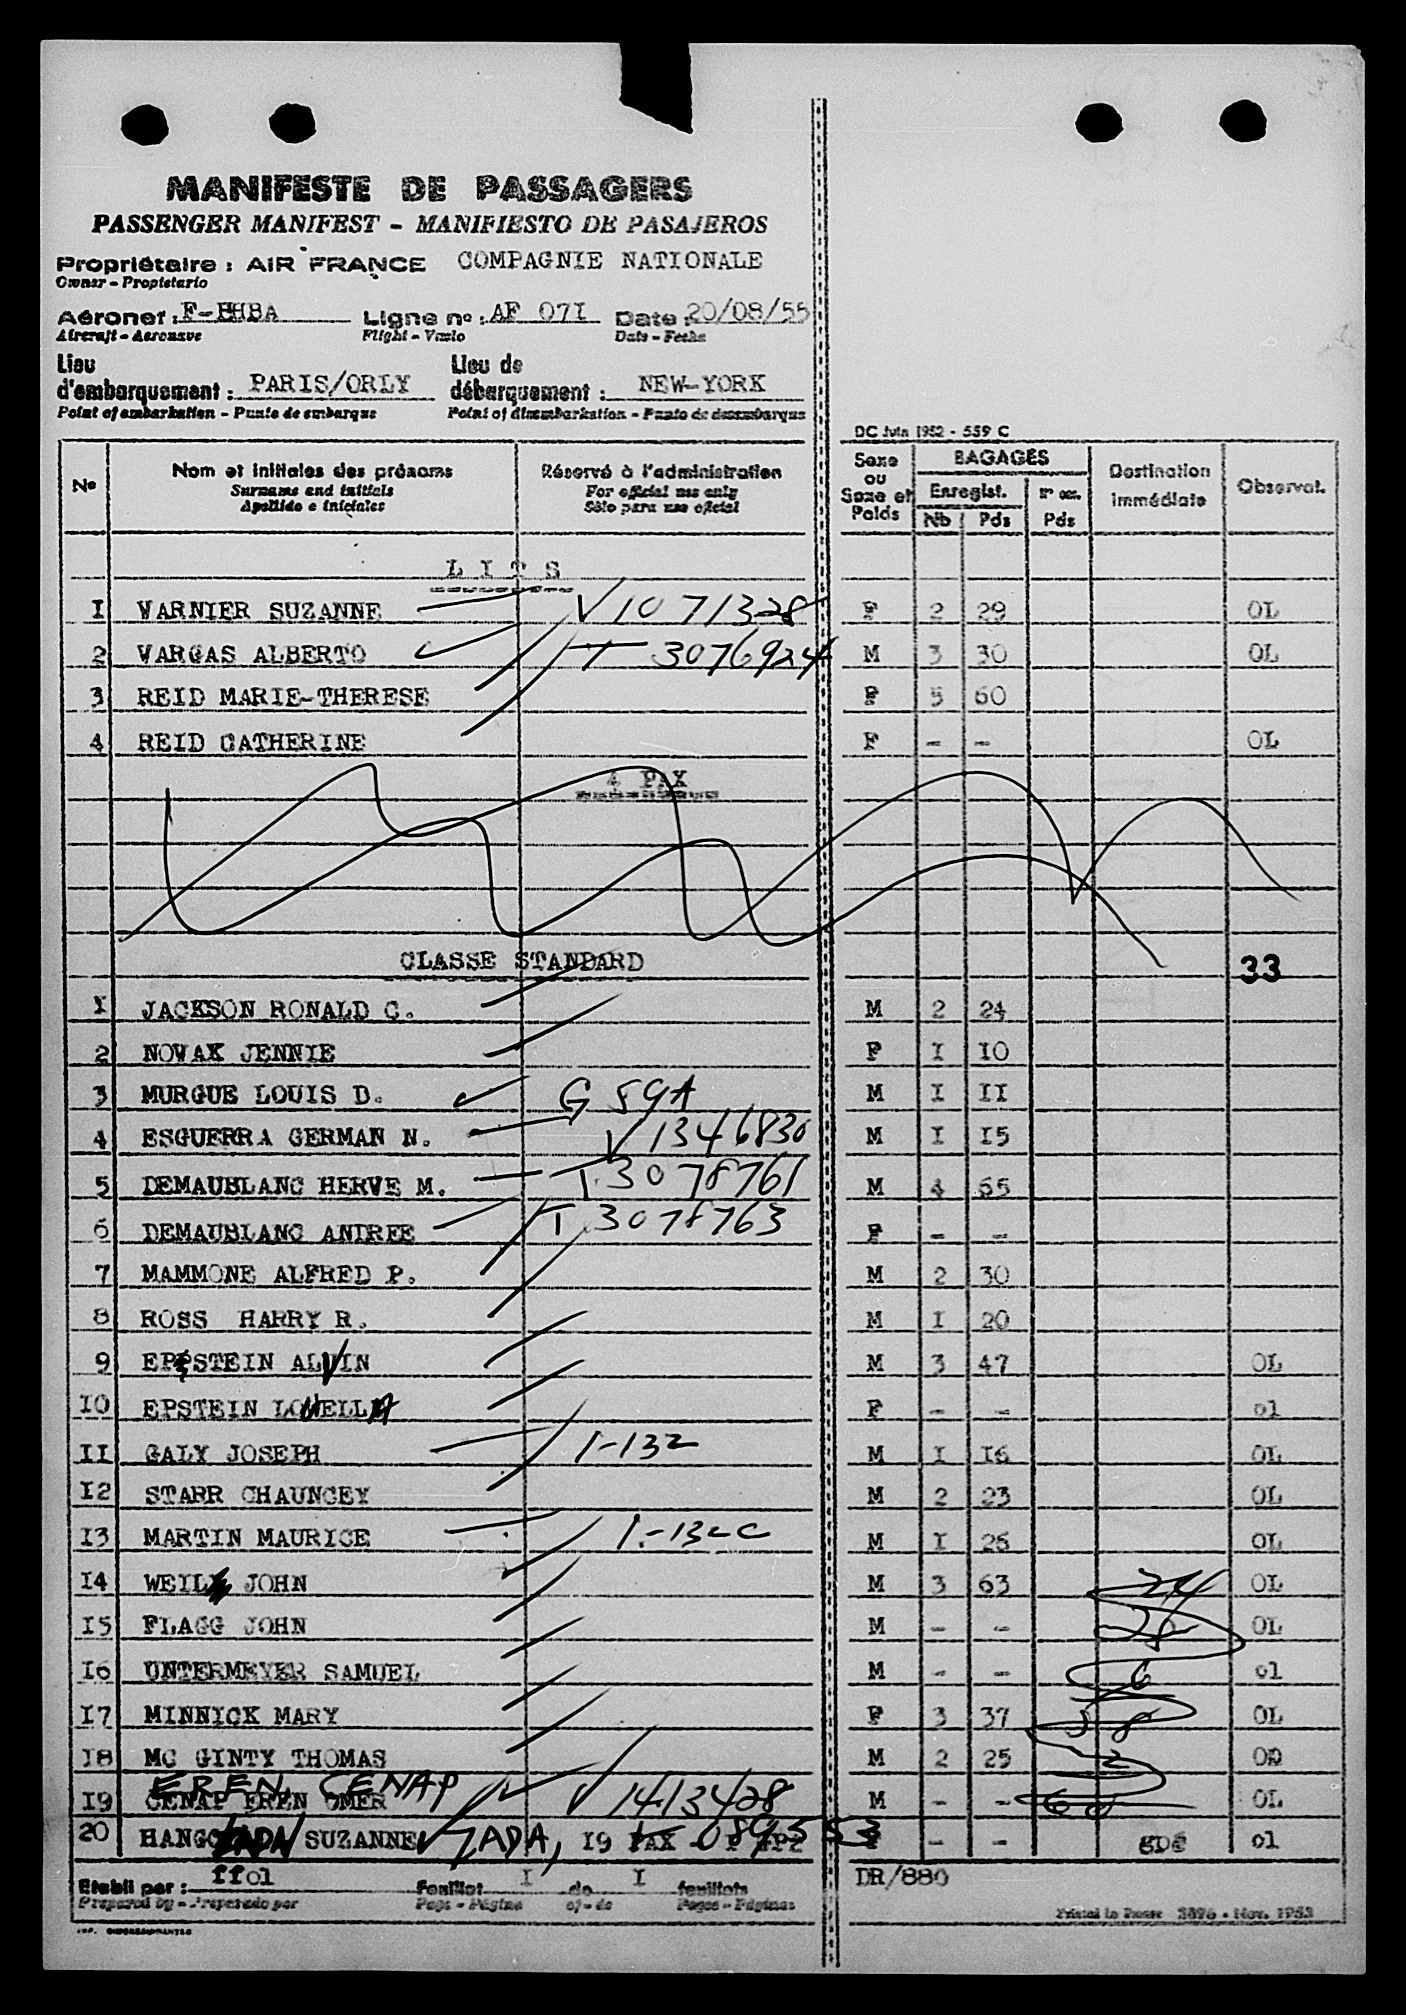 MANIFESTE DE PASSAGERS
PASSENGER MANIFEST - MANIFIESTO DE PASAJEROS
Propriétaire : AIR FRANCE COMPAGNIE NATIONALE
Owner - Propietario
Aéronef : F-BHBA Ligne nº : AF 07I Date : 20/08/55
Aircraft - Aeronave Flight - Vuelo Date - Fecha
Lieu d'embarquement : PARIS/ORLY Lieu de débarquement : NEW-YORK
Point of embarkation - Punto de embarque Point of disembarkation - Punto de desembarque
DC Juin 1952 - 559 C
Nº Nom et initiales des prénoms Réservé à l'administration Sexe ou Sexe et Poids BAGAGES Destination immédiate Observat.
Surname and initials For official use only Enregist. Nº
Apellido e iniciales Sólo para uso oficial Nb Pds Pds
L I T S
I VARNIER SUZANNE V1071328 F 2 29 OL
2 VARGAS ALBERTO T 3076924 M 3 30 OL
3 REID MARIE-THERESE F 5 60
4 REID CATHERINE F - - OL
4 PAX
CLASSE STANDARD 33
I JACKSON RONALD C. M 2 24
2 NOVAK JENNIE F I IO
3 MURGUE LOUIS D. G 59A M I II
4 ESGUERRA GERMAN N. V 1346830 M I I5
5 DEMAUBLANC HERVE M. T 3078761 M 4 65
6 DEMAUBLANC ANDREE T 3078763 F - -
7 MAMMONE ALFRED P. M 2 30
8 ROSS HARRY R. M I 20
9 EPSTEIN ALVIN M 3 47 OL
IO EPSTEIN LOUELLA F - - ol
II GALY JOSEPH 1-132 M I I6 OL
I2 STARR CHAUNCEY M 2 23 OL
I3 MARTIN MAURICE M I 25 OL
I4 WEIL JOHN M 3 63 24 OL
I5 FLAGG JOHN M - - OL
I6 UNTERMEYER SAMUEL M - - 6 ol
I7 MINNICK MARY F 3 37 OL
I8 MC GINTY THOMAS M 2 25 2
EREN, CENAP
I9 CENAP EREN OMER V 1413428 M - - OL
20 SUZANNE ZADA, I9 PAX F - - ol
Etabli par : ffol Feuillet I de I feuillets DR/880
Prepared by - Preparado por Page - Página of - de Pages - Páginas
Printed in France 3896 - Nov. 1953